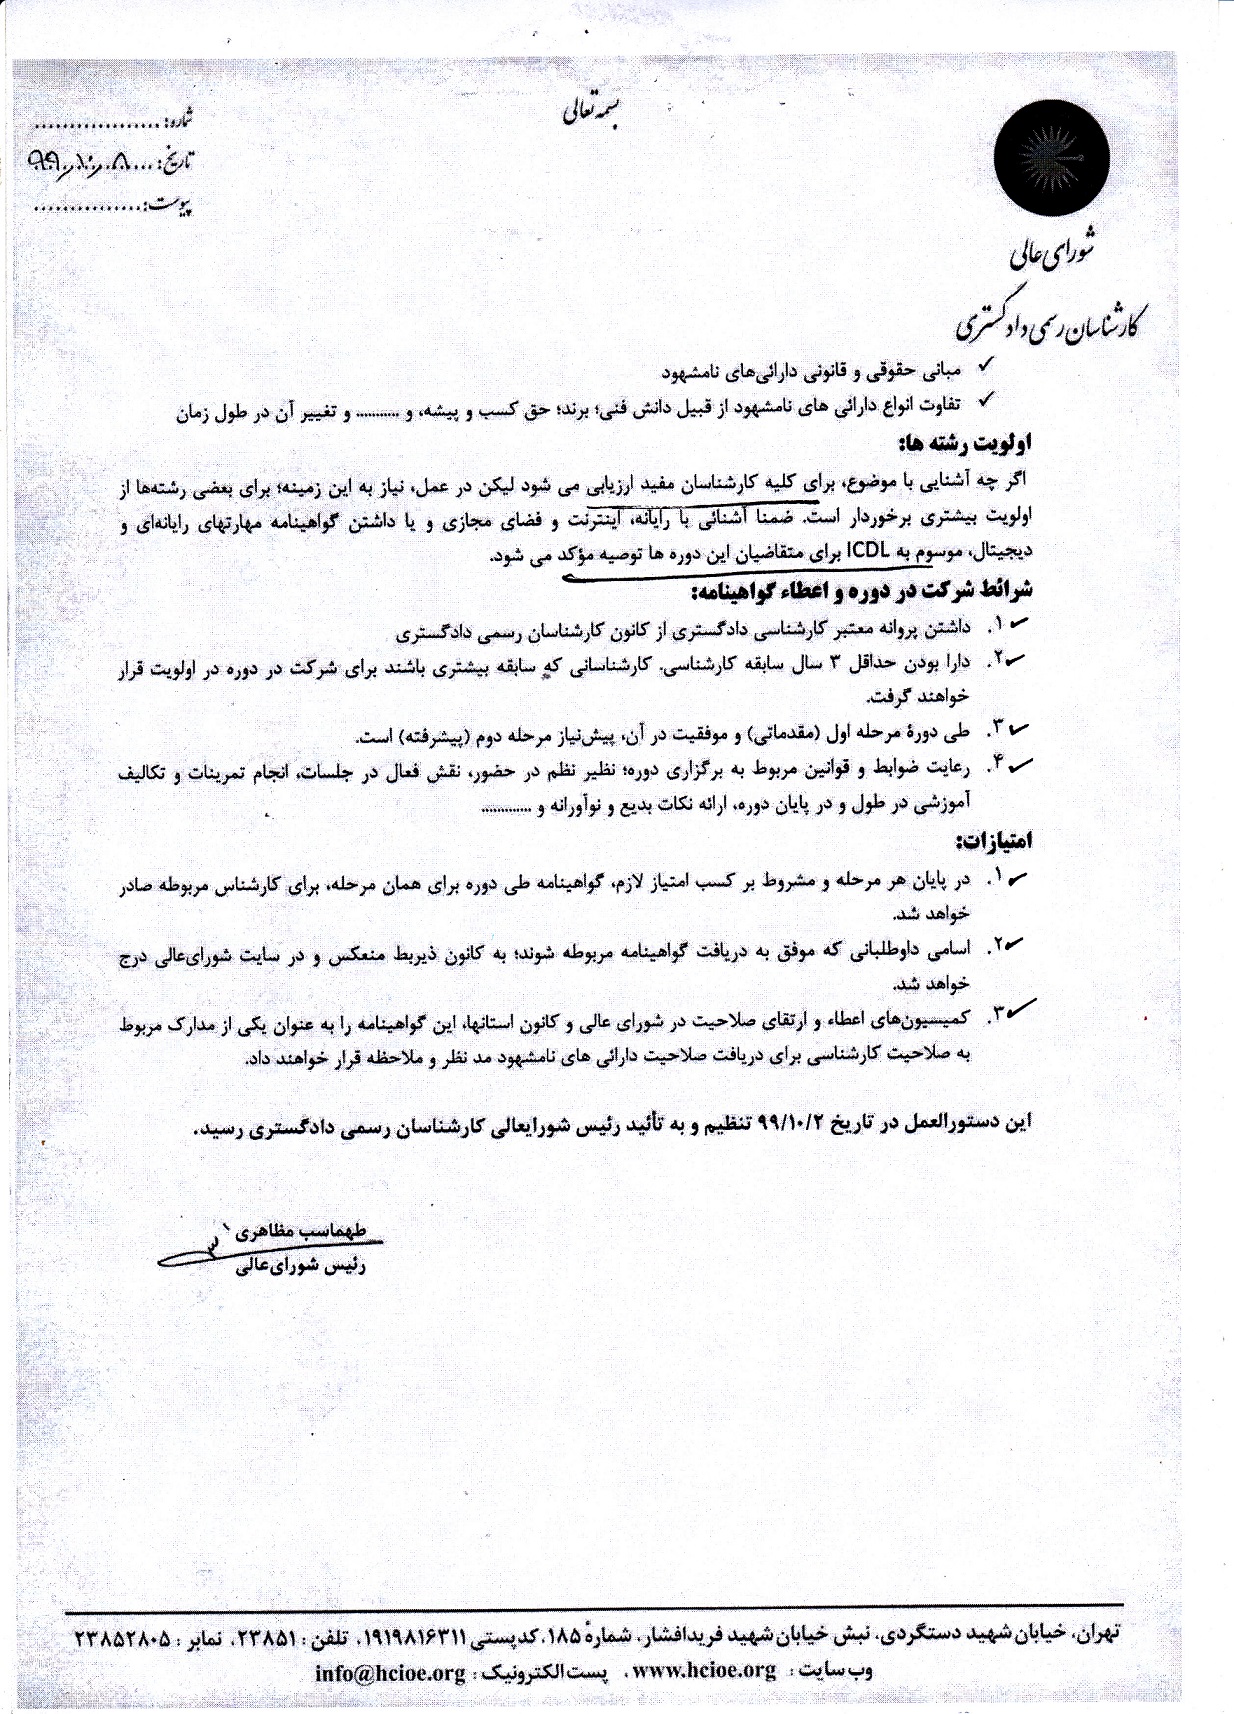 بسمه تعالی
شماره: ..................
تاریخ: ... ۹۹/۱۰/۸
پیوست: ................
شورای عالی
کارشناسان رسمی دادگستری
✓ مبانی حقوقی و قانونی دارائی‌های نامشهود
✓ تفاوت انواع دارائی های نامشهود از قبیل دانش فنی؛ برند؛ حق کسب و پیشه، و ........... و تغییر آن در طول زمان
اولویت رشته ها:
اگر چه آشنایی با موضوع، برای کلیه کارشناسان مفید ارزیابی می شود لیکن در عمل، نیاز به این زمینه؛ برای بعضی رشته‌ها از
اولویت بیشتری برخوردار است. ضمنا آشنائی با رایانه، اینترنت و فضای مجازی و یا داشتن گواهینامه مهارتهای رایانه‌ای و
دیجیتال، موسوم به ICDL برای متقاضیان این دوره ها توصیه مؤکد می شود.
شرائط شرکت در دوره و اعطاء گواهینامه:
۱. داشتن پروانه معتبر کارشناسی دادگستری از کانون کارشناسان رسمی دادگستری
۲. دارا بودن حداقل ۳ سال سابقه کارشناسی. کارشناسانی که سابقه بیشتری باشند برای شرکت در دوره در اولویت قرار
خواهند گرفت.
۳. طی دورهٔ مرحله اول (مقدماتی) و موفقیت در آن، پیش‌نیاز مرحله دوم (پیشرفته) است.
۴. رعایت ضوابط و قوانین مربوط به برگزاری دوره؛ نظیر نظم در حضور، نقش فعال در جلسات، انجام تمرینات و تکالیف
آموزشی در طول و در پایان دوره، ارائه نکات بدیع و نوآورانه و ............
امتیازات:
۱. در پایان هر مرحله و مشروط بر کسب امتیاز لازم، گواهینامه طی دوره برای همان مرحله، برای کارشناس مربوطه صادر
خواهد شد.
۲. اسامی داوطلبانی که موفق به دریافت گواهینامه مربوطه شوند؛ به کانون ذیربط منعکس و در سایت شورای‌عالی درج
خواهد شد.
۳. کمیسیون‌های اعطاء و ارتقای صلاحیت در شورای عالی و کانون استانها، این گواهینامه را به عنوان یکی از مدارک مربوط
به صلاحیت کارشناسی برای دریافت صلاحیت دارائی های نامشهود مد نظر و ملاحظه قرار خواهند داد.
این دستورالعمل در تاریخ ۹۹/۱۰/۲ تنظیم و به تأئید رئیس شورایعالی کارشناسان رسمی دادگستری رسید.
طهماسب مظاهری
رئیس شورای‌عالی
تهران، خیابان شهید دستگردی، نبش خیابان شهید فریدافشار، شمارهٔ ۱۸۵، کدپستی ۱۹۱۹۸۱۶۳۱۱، تلفن : ۲۳۸۵۱، نمابر : ۲۳۸۵۲۸۰۵
وب سایت : www.hcioe.org ، پست الکترونیک : info@hcioe.org